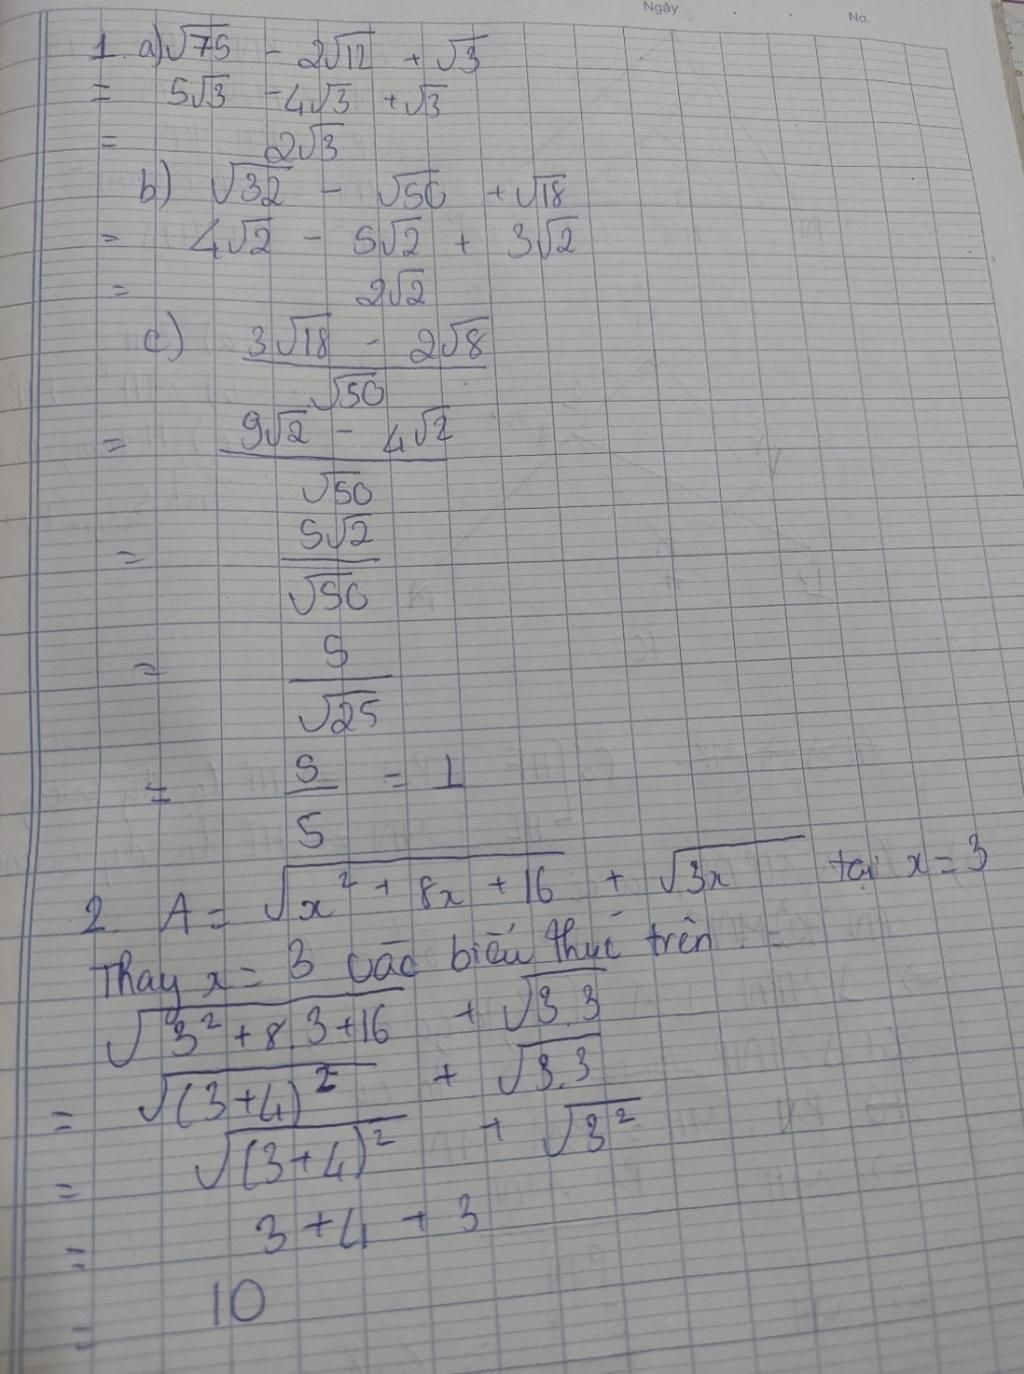 Ngày
No.
1. a) √75 - 2√12 + √3
= 5√3 - 4√3 + √3
= 2√3
b) √32 - √50 + √18
= 4√2 - 5√2 + 3√2
= 2√2
c) 3√18 - 2√8
√50
= 9√2 - 4√2
√50
= 5√2
√50
= 5
√25
= 5 = 1
5
2. A = √x² + 8x + 16 + √3x tại x = 3
Thay x = 3 vào biểu thức trên
√3² + 8.3 + 16 + √3.3
= √(3+4)² + √3.3
= √(3+4)² + √3²
= 3 + 4 + 3
= 10